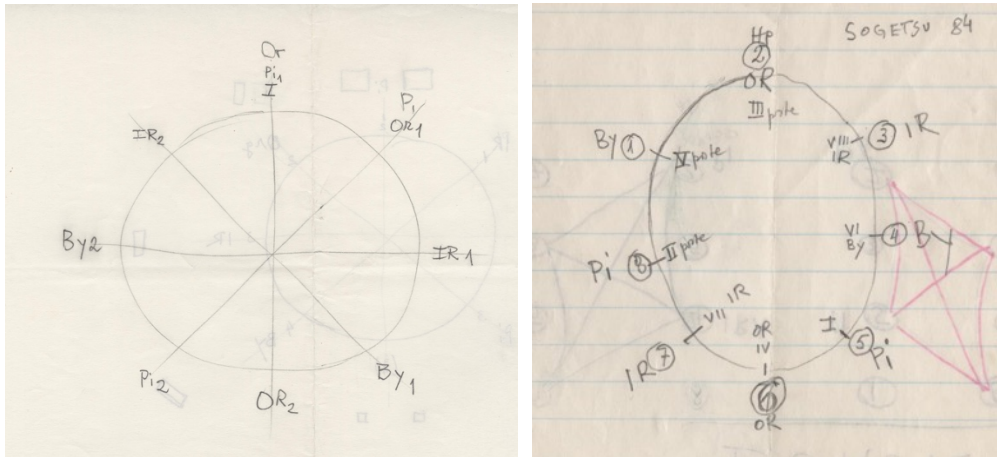 Or
Pi1
I
P1
OR1
IR2
By2
IR1
Pi2
By1
OR2
SOGETSU 84
Hp
2
OR
III pote
By 1
IV pote
VIII
IR
3 IR
VI
By
4 By
Pi 8
II pote
VII IR
IR 7
OR
IV
I
5 Pi
6
OR